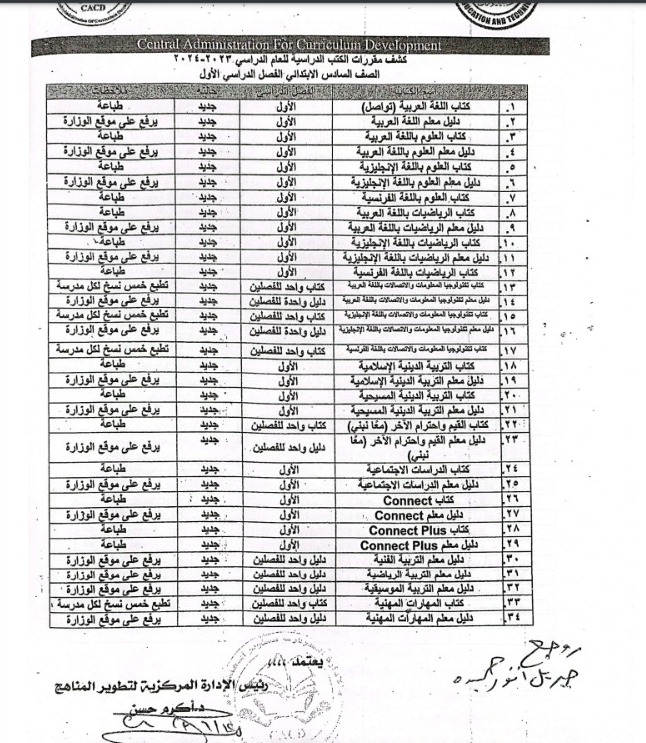 CACD
EDUCATION AND TECHNI
Central Administration For Curriculum Development
كشف مقررات الكتب الدراسية للعام الدراسي ٢٠٢٣-٢٠٢٤
الصف السادس الابتدائي الفصل الدراسي الأول
اسم الكتاب الفصل الدراسي حالته ملاحظات
١. كتاب اللغة العربية (تواصل) الأول جديد طباعة
٢. دليل معلم اللغة العربية الأول جديد يرفع على موقع الوزارة
٣. كتاب العلوم باللغة العربية الأول جديد طباعة
٤. دليل معلم العلوم باللغة العربية الأول جديد يرفع على موقع الوزارة
٥. كتاب العلوم باللغة الإنجليزية الأول جديد طباعة
٦. دليل معلم العلوم باللغة الإنجليزية الأول جديد يرفع على موقع الوزارة
٧. كتاب العلوم باللغة الفرنسية الأول جديد طباعة
٨. كتاب الرياضيات باللغة العربية الأول جديد طباعة
٩. دليل معلم الرياضيات باللغة العربية الأول جديد يرفع على موقع الوزارة
١٠. كتاب الرياضيات باللغة الإنجليزية الأول جديد طباعة
١١. دليل معلم الرياضيات باللغة الإنجليزية الأول جديد يرفع على موقع الوزارة
١٢. كتاب الرياضيات باللغة الفرنسية الأول جديد طباعة
١٣. كتاب تكنولوجيا المعلومات والاتصالات باللغة العربية كتاب واحد للفصلين جديد تطبع خمس نسخ لكل مدرسة
١٤. دليل معلم تكنولوجيا المعلومات والاتصالات باللغة العربية دليل واحدة للفصلين جديد يرفع على موقع الوزارة
١٥. كتاب تكنولوجيا المعلومات والاتصالات باللغة الإنجليزية كتاب واحد للفصلين جديد تطبع خمس نسخ لكل مدرسة
١٦. دليل معلم تكنولوجيا المعلومات والاتصالات باللغة الإنجليزية دليل واحدة للفصلين جديد يرفع على موقع الوزارة
١٧. كتاب تكنولوجيا المعلومات والاتصالات باللغة الفرنسية كتاب واحد للفصلين جديد تطبع خمس نسخ لكل مدرسة
١٨. كتاب التربية الدينية الإسلامية الأول جديد طباعة
١٩. دليل معلم التربية الدينية الإسلامية الأول جديد يرفع على موقع الوزارة
٢٠. كتاب التربية الدينية المسيحية الأول جديد طباعة
٢١. دليل معلم التربية الدينية المسيحية الأول جديد يرفع على موقع الوزارة
٢٢. كتاب القيم واحترام الآخر (معًا نبني) كتاب واحد للفصلين جديد طباعة
٢٣. دليل معلم القيم واحترام الآخر (معًا نبني) دليل واحد للفصلين جديد يرفع على موقع الوزارة
٢٤. كتاب الدراسات الاجتماعية الأول جديد طباعة
٢٥. دليل معلم الدراسات الاجتماعية الأول جديد يرفع على موقع الوزارة
٢٦. كتاب Connect الأول جديد طباعة
٢٧. دليل معلم Connect الأول جديد يرفع على موقع الوزارة
٢٨. كتاب Connect Plus الأول جديد طباعة
٢٩. دليل معلم Connect Plus الأول جديد طباعة
٣٠. دليل معلم التربية الفنية دليل واحد للفصلين جديد يرفع على موقع الوزارة
٣١. دليل معلم التربية الرياضية دليل واحد للفصلين جديد يرفع على موقع الوزارة
٣٢. دليل معلم التربية الموسيقية دليل واحد للفصلين جديد يرفع على موقع الوزارة
٣٣. كتاب المهارات المهنية كتاب واحد للفصلين جديد تطبع خمس نسخ لكل مدرسة
٣٤. دليل معلم المهارات المهنية دليل واحد للفصلين جديد يرفع على موقع الوزارة
يعتمد ،،،،
رئيس الإدارة المركزية لتطوير المناهج
د.أكرم حسن